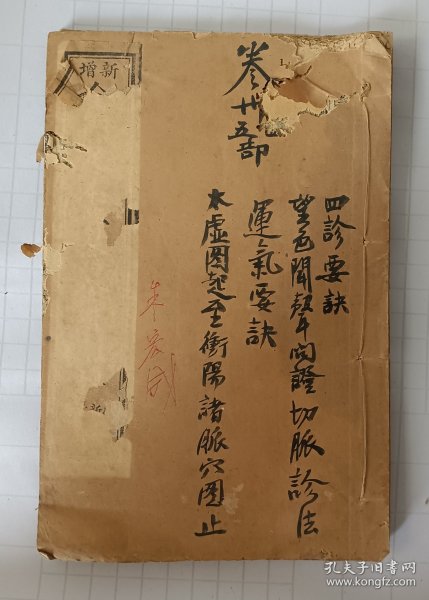 四診要訣
望色聞聲問證切脈診法
運氣要訣
太虛圖起至衝陽諸脈穴圖止
卷卅
五部
新增
孔夫子旧书网
www.kongfz.com